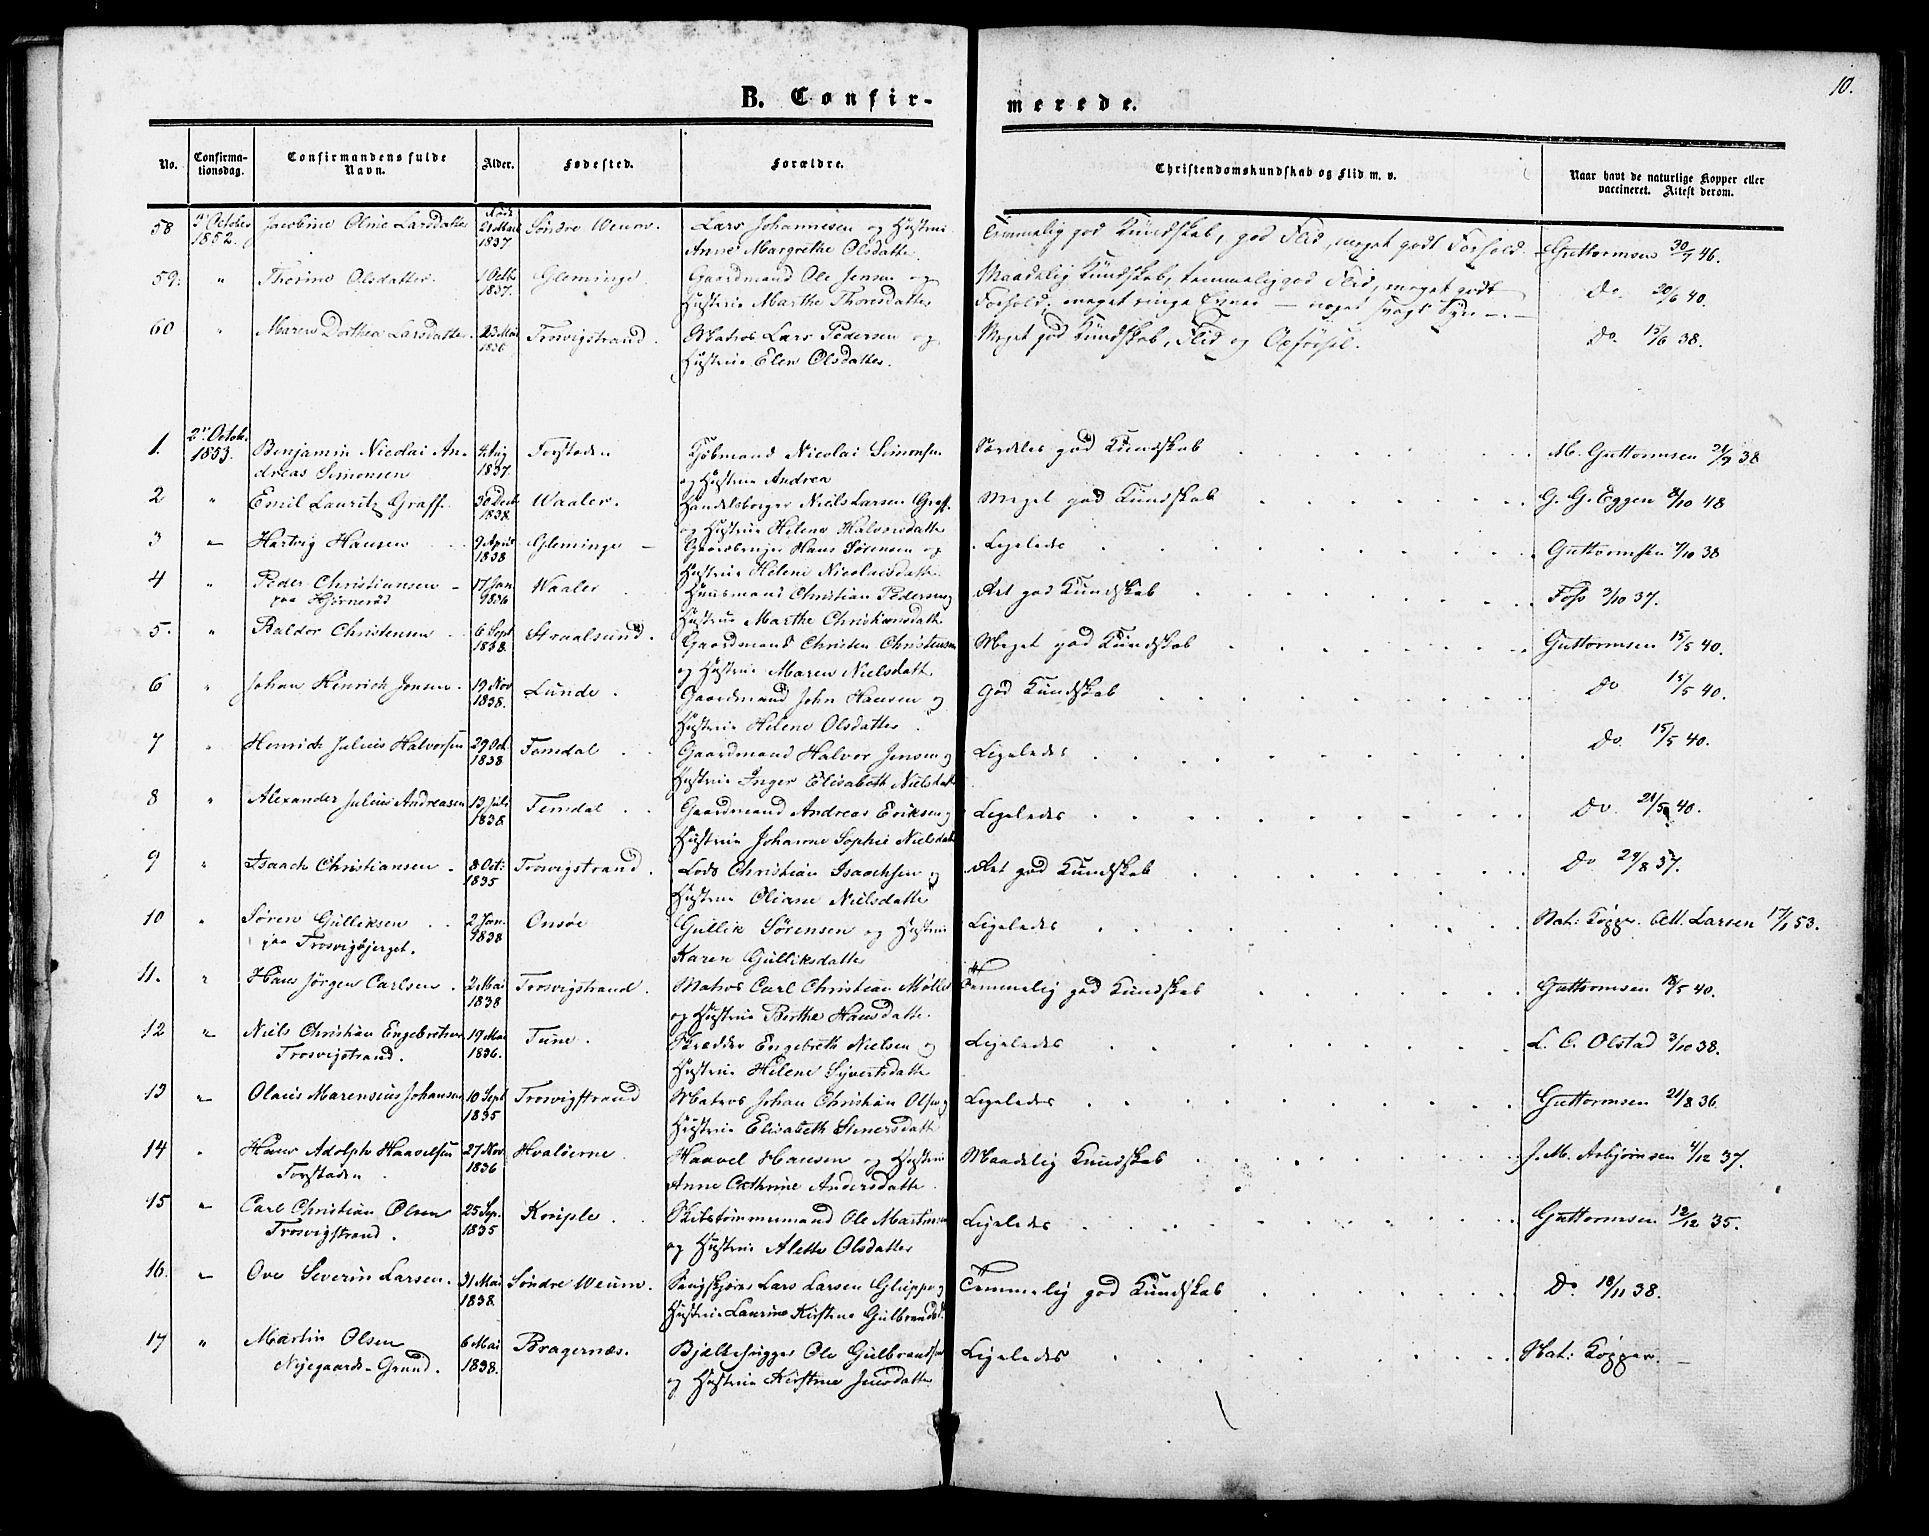 10.
B. Confir-
merede.
No.
Confirma-
tionsdag.
Confirmandens fulde
Navn.
Alder.
Fødested.
Forældre.
Christendomskundskab og Flid m. v.
Naar havt de naturlige Kopper eller
vaccineret. Attest derom.
58 3' October Jacobine Oline Larsdatter Født 21 Mai Søndre Weum. Lars Johannesen og Hustrue Temmelig god Kundskab, god Flid, meget godt Forhold. Guttormsen 30/7 46.
1852. 1837 Anne Margrethe Olsdatter.
59. " Thorine Olsdatter. 1 Octb Gleminge Gaardmand Ole Jensen og Maadelig Kundskab, temmelig god Flid, meget godt Do. 20/6 40.
1837. Hustrue Marthe Thoresdatter Forhold; meget ringe Evner — noget svagt Syn —.
60 " Maren Dorthea Larsdatter. 23 Mai Trosvigstrand. Matros Lars Pedersen og Meget god Kundskab, Flid og Opførsel. Do. 15/6 38.
1836 Hustrue Elen Olsdatter.
1. 2' Octob. Benjamin Nicolai An- 4 Aug Forstaden Kjøbmand Nicolai Simonsen Særdeles god Kundskab M. Guttormsen 21/9 38
1853. dreas Simonsen 1837. og Hustrue Andrea
2 " Emil Lauritz Graff. 30 Decb Waaler. Handelsborger Niels Larsen Graff. Meget god Kundskab G. G. Eggen 8/10 48
1838. og Hustrue Helene Halvorsdatter
3 " Hartvig Hansen 9 April Gleminge Gaardbruger Hans Sørensen og Ligeledes Guttormsen 4/10 38
1838 Hustrue Helene Nicolaisdatter.
4 " Peder Christiansen 17 Jan Waaler Huusmand Christian Pedersen og Ret god Kundskab Foss 3/10 37.
paa Hjørnerød 1836 Hustrue Marthe Christiansdatter
5. " Baldor Christensen 6 Sept Straalsund. Gaardmand Christen Christensen Meget god Kundskab Guttormsen 15/5 40.
1838. og Hustrue Maren Nielsdatt
6 " Johan Henrich Jensen. 19 Nov Lunde. Gaardmand John Hansen og God Kundskab Do 15/5 40.
1838. Hustrue Helene Olsdatter
7 " Henrich Julius Halvorsen 29 Oct. Femdal Gaardmand Halvor Jensen og Ligeledes Do. 15/5 40.
1838 Hustrue Inger Elisabeth Nielsdatt
8 " Alexander Julius Andreasen 13 Juli Femdal Gaardmand Andreas Eriksen og Ligeledes Do. 21/5 40.
1838 Hustrue Johanne Sophie Nielsdatt
9 " Isaach Christiansen 8 Oct: Trosvigstrand. Lods Christian Isaachsen og Ret god Kundskab Do 29/8 37.
1835 Hustrue Oliane Nielsdatter
10 " Søren Gulliksen 2 Jan. Onsøe Gullik Sørensen og Hustrue Ligeledes Nat: Kopper. Att. Larsen 17/1 53.
paa Trosvigbjerget. 1838 Karen Gulliksdatter
11. " Hans Jørgen Carlsen. 2 Mai Trosvigstrand. Matros Carl Christian Møller Temmelig god Kundskab Guttormsen 18/5 40.
1838 og Hustrue Berthe Hansdatter.
12 " Niels Christian Engebrethsen 19 Mai Tune. Skrædder Engebreth Nielsen og Ligeledes L. C. Olstad 3/10 38.
Trosvigstrand. 1836. Hustrue Helene Syvertsdatter
13 " Olaus Marensius Johansen 10 Sept Trosvigstrand Matros Johan Christian Olsen og Ligeledes Guttormsen 21/8 36.
1835 Hustrue Elisabeth Stenersdatt
14 " Hans Adolph Haavelsen 27 Nov Hvaløerne Haavel Hansen og Hustrue Maadelig Kundskab J. M. Asbjørnsen 4/12 37.
Forstaden. 1836 Anne Cathrine Andersdatter.
15 " Carl Christian Olsen 25 Sep. Skibstømmermand Ole Martinsen Ligeledes Guttormsen 12/12 35.
Trosvigstrand. 1835 og Hustrue Alette Olsdatter
16. " Ove Severin Larsen. 31 Mai Søndre Weum. Saugskjærer Lars Larsen Gluppe og Temmelig god Kundskab Do 18/11 38.
1838. Hustrue Laurine Kirstine Gulbrandsd.
17 " Martin Olsen 6 Mai Bragernæs. Ole Gulbrandsen Ligeledes Nat: Kopper.
Nyegaards-Grund. 1838. og Hustrue Kirstine Jensdatter